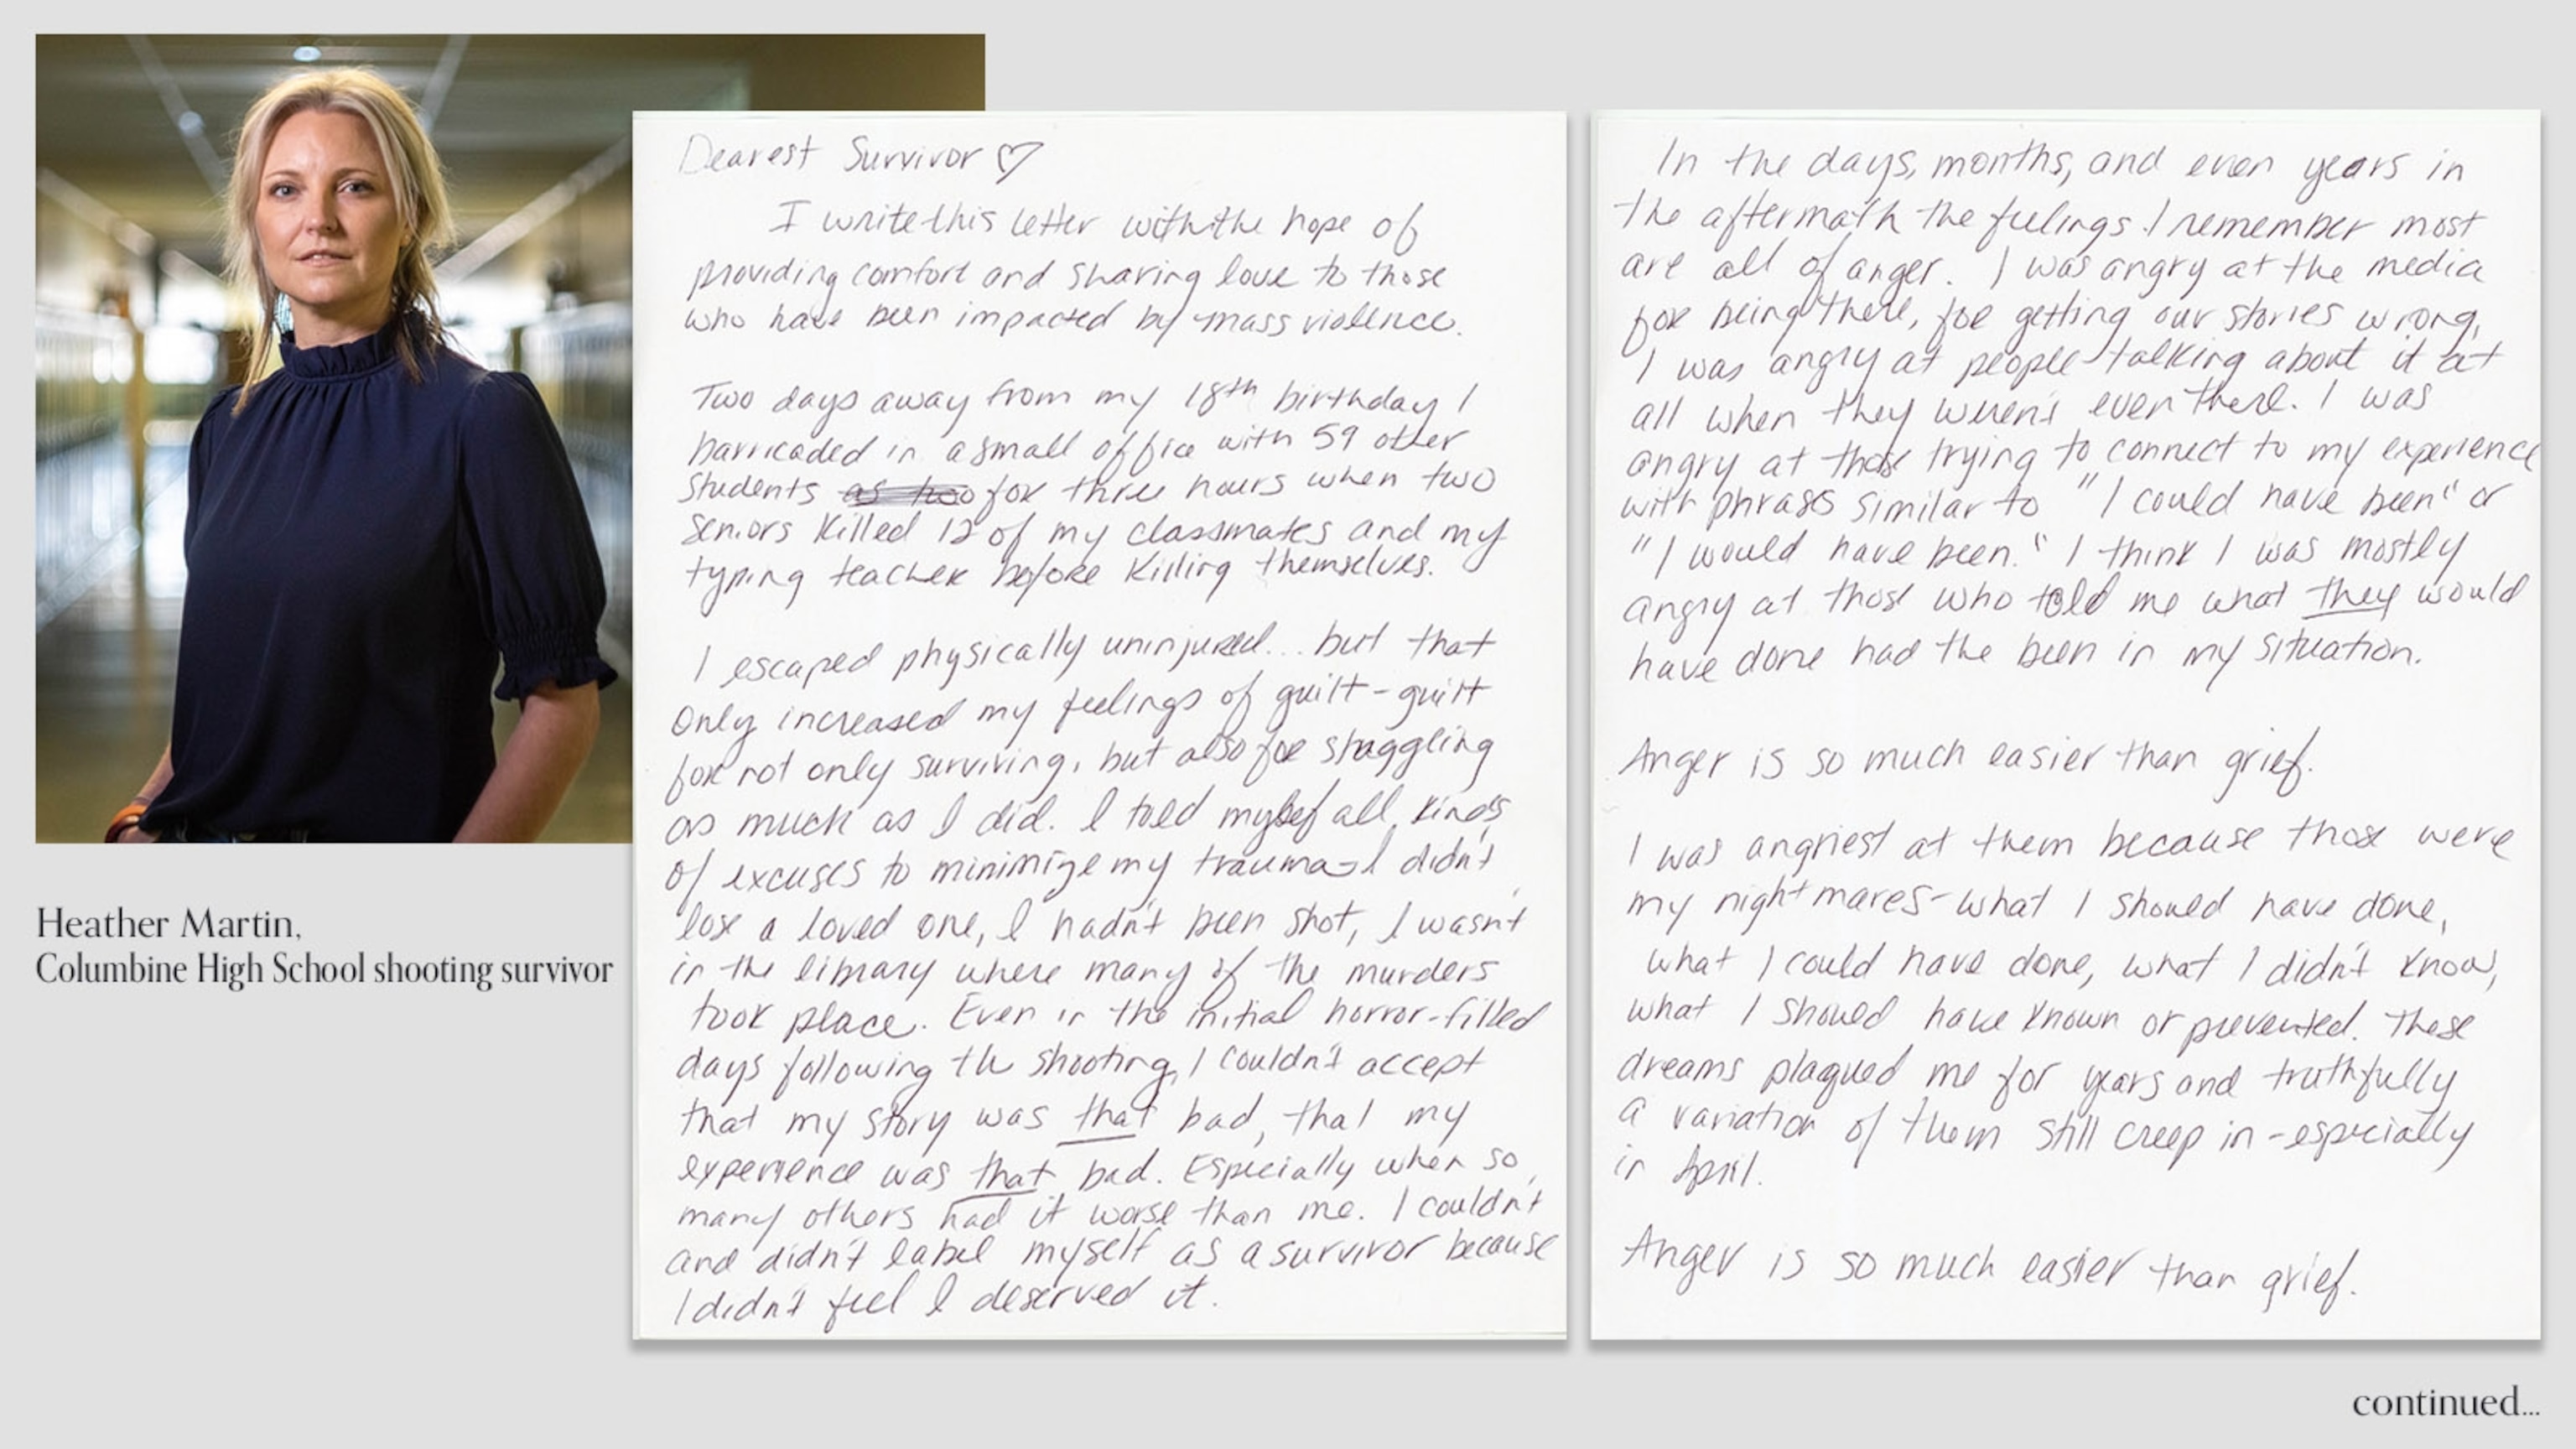 Dearest Survivor ♡
I write this letter with the hope of
providing comfort and sharing love to those
who have been impacted by mass violence.
Two days away from my 18th birthday I
barricaded in a small office with 59 other
students as two for three hours when two
seniors killed 12 of my classmates and my
typing teacher before killing themselves.
I escaped physically uninjured... but that
only increased my feelings of guilt - guilt
for not only surviving, but also for struggling
as much as I did. I told myself all kinds
of excuses to minimize my trauma - I didn't
lose a loved one, I hadn't been shot, I wasn't
in the library where many of the murders
took place. Even in the initial horror-filled
days following the shooting, I couldn't accept
that my story was that bad, that my
experience was that bad. Especially when so
many others had it worse than me. I couldn't
and didn't label myself as a survivor because
I didn't feel I deserved it.
In the days, months, and even years in
the aftermath the feelings I remember most
are all of anger. I was angry at the media
for being there, for getting our stories wrong,
I was angry at people talking about it at
all when they weren't even there. I was
angry at those trying to connect to my experience
with phrases similar to "I could have been" or
"I would have been." I think I was mostly
angry at those who told me what they would
have done had the been in my situation.
Anger is so much easier than grief.
I was angriest at them because those were
my nightmares - what I should have done,
what I could have done, what I didn't know,
what I should have known or prevented. These
dreams plagued me for years and truthfully
a variation of them still creep in - especially
in April.
Anger is so much easier than grief.
Heather Martin,
Columbine High School shooting survivor
continued...